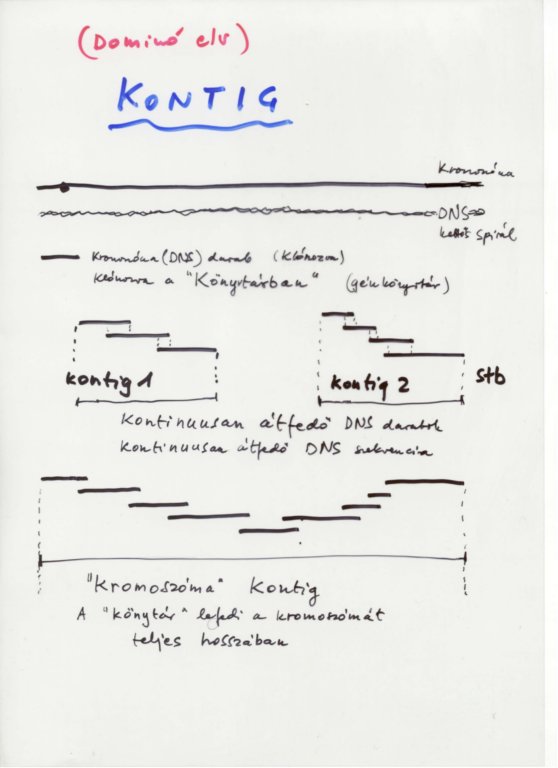 (Dominó elv)
KONTIG
Kromoszóma
DNS
kettős spirál
Kromoszóma (DNS) darab (Klónozva)
klónozva a "Könyvtárban" (génkönyvtár)
kontig 1
kontig 2
stb
Kontinuusan átfedő DNS darabok
Kontinuusan átfedő DNS szekvencia
"Kromoszóma" Kontig
A "könytár" lefedi a kromoszómát
teljes hosszában